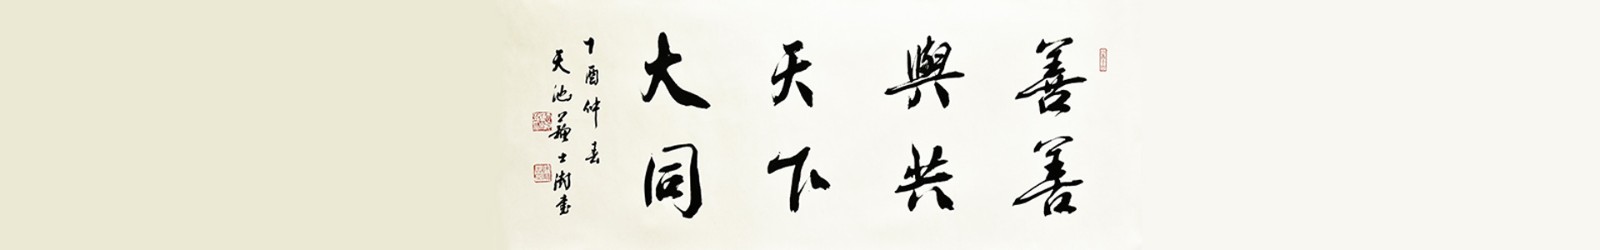 善善
與共
天下
大同
丁酉仲春
天池蘇士澍書